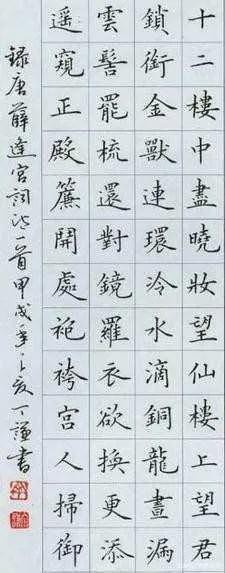 十二樓中盡曉妝望仙樓上望君
鎖銜金獸連環冷水滴銅龍晝漏
雲髻罷梳還對鏡羅衣欲換更添
遥窺正殿簾開處袍袴宮人掃御
録唐薛逢宮詞一首甲戌年夏丁謙書